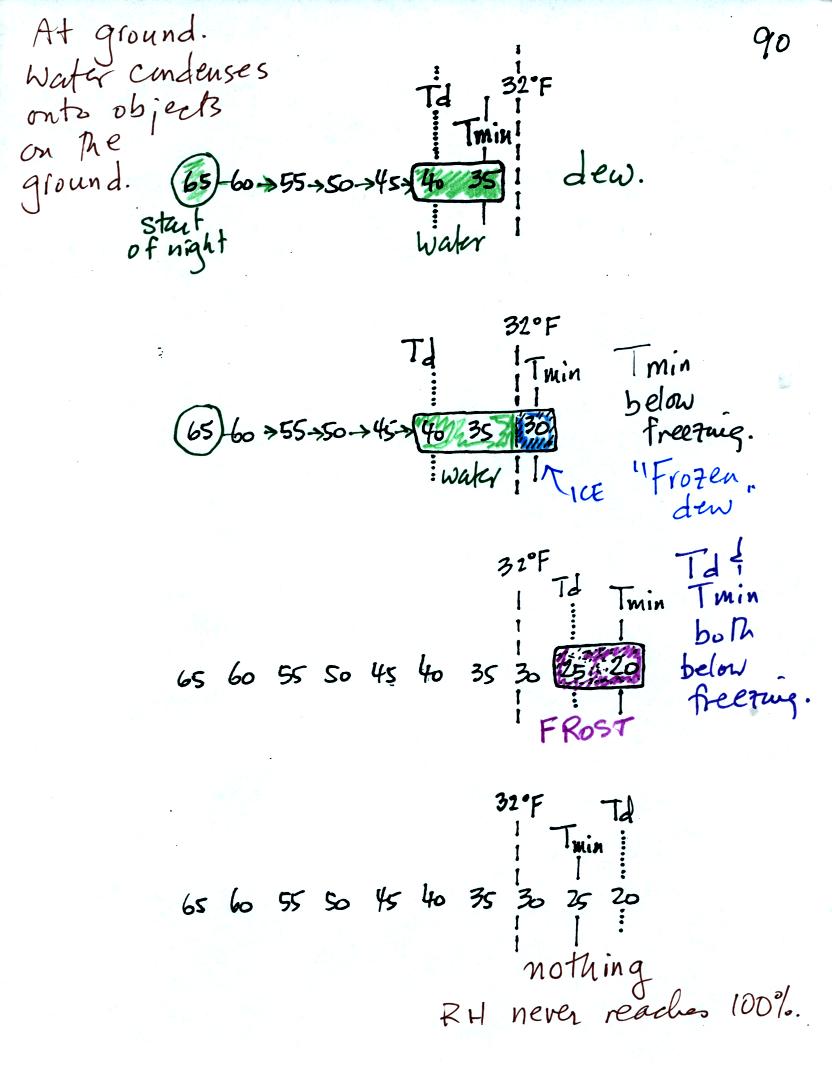 At ground.
Water condenses
onto objects
on the
ground.
90
Td
32°F
Tmin
65 60 → 55 → 50 → 45 → 40 35
dew.
start
of night
water
32°F
Td
Tmin
65 60 → 55 → 50 → 45 → 40 35 30
Tmin
below
freezing.
water
ICE
"Frozen
dew"
32°F
Td
Tmin
65 60 55 50 45 40 35 30 25 20
Td &
Tmin
both
below
freezing.
FROST
32°F
Td
Tmin
65 60 55 50 45 40 35 30 25 20
nothing
RH never reaches 100%.